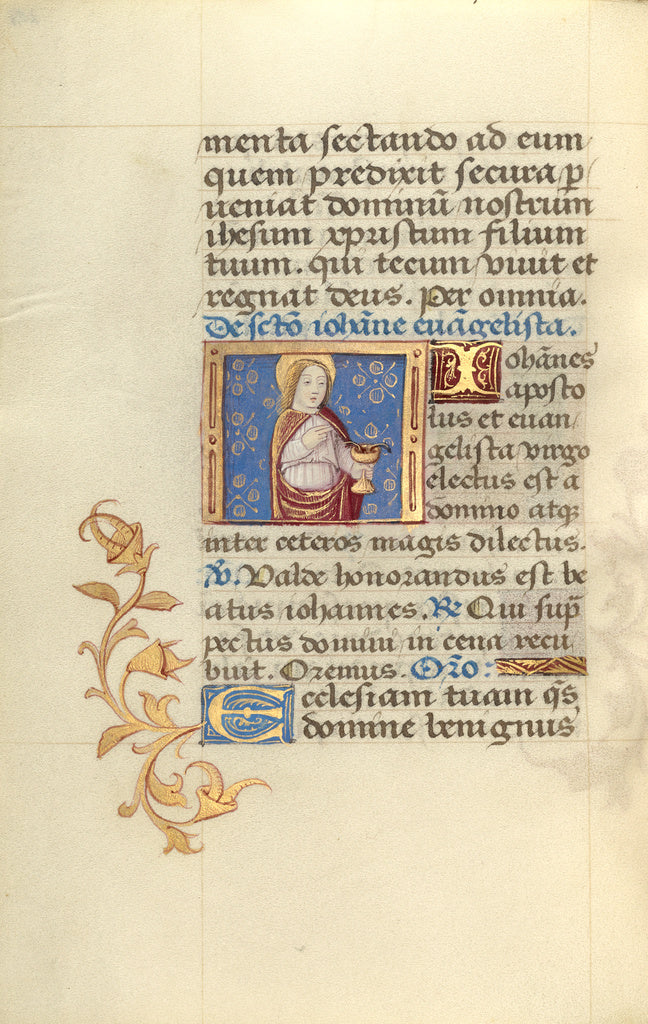 menta sectando ad eum
quem predixit secura p
ueniat dominū nostrum
ihesum xpristum filium
tuum. qui tecum viuit et
regnat deus. Per omnia.
De sctō iohāne euāgelista.
Iohānes
aposto
lus et euan
gelista virgo
electus est a
domino atq
inter ceteros magis dilectus.
V. Valde honorandus est be
atus iohannes. R Qui sup̄
pectus domini in cena recu
buit. Oremus. Orō:
Ecclesiam tuam q̄s
domine benignus